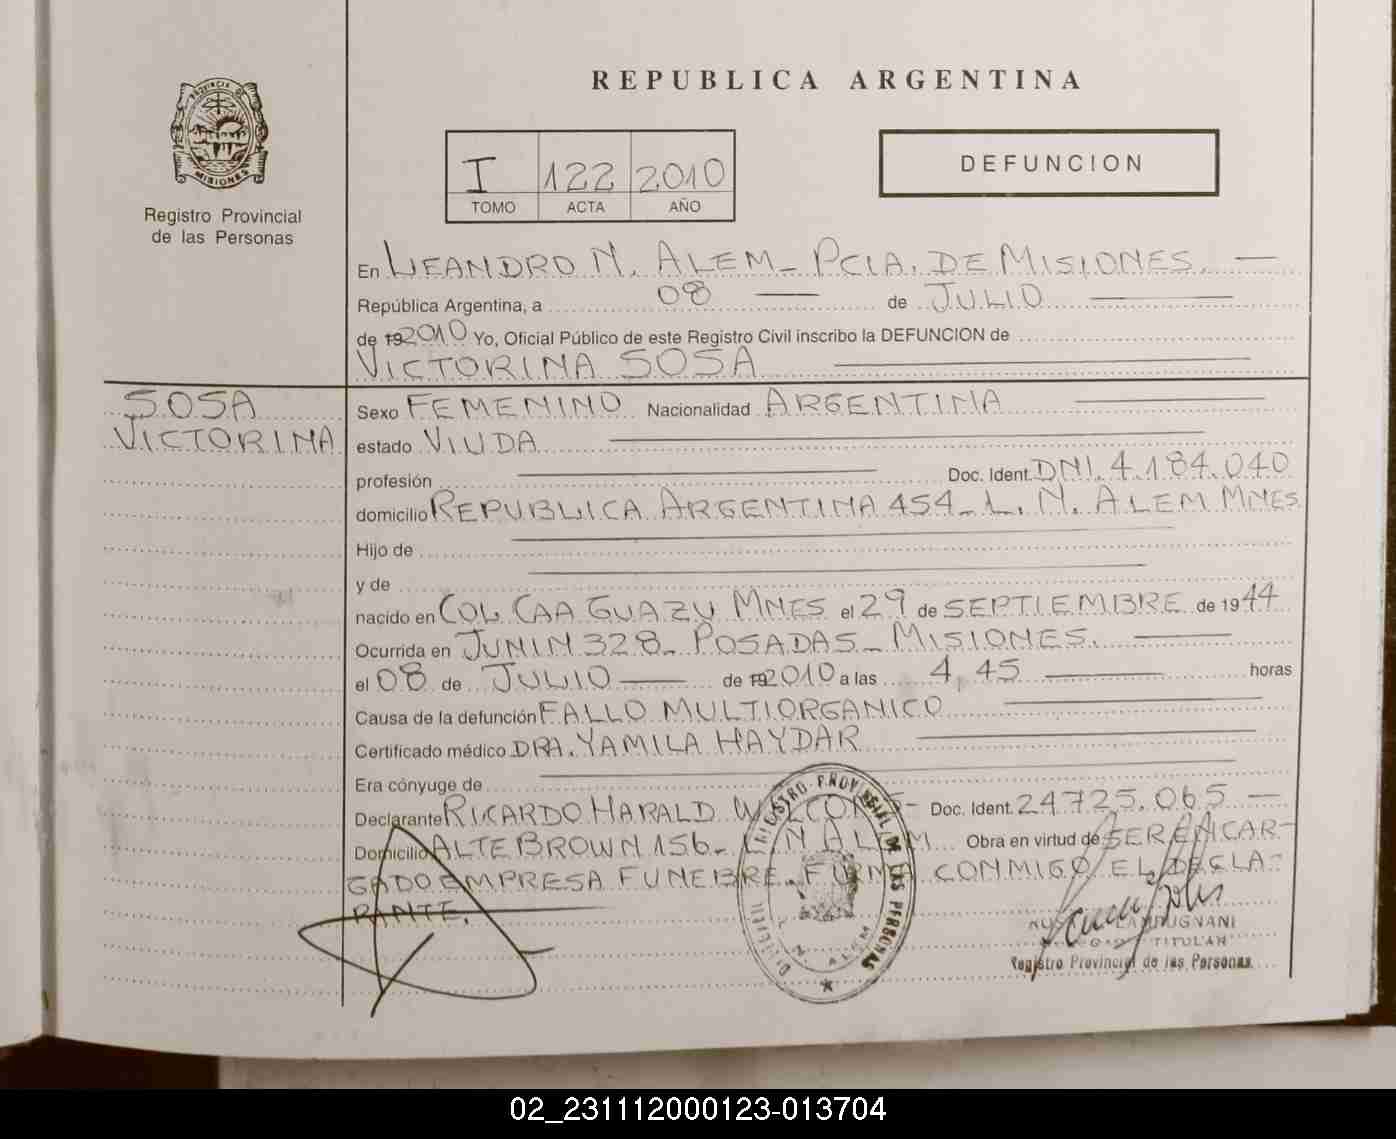 REPUBLICA ARGENTINA
PROVINCIA DE
MISIONES
Registro Provincial
de las Personas
I 122 2010
TOMO ACTA AÑO
DEFUNCION
En LEANDRO N. ALEM_ PCIA. DE MISIONES.
República Argentina, a 08 de JULIO
de 192010 Yo, Oficial Público de este Registro Civil inscribo la DEFUNCION de
VICTORINA SOSA
SOSA
VICTORINA
Sexo FEMENINO Nacionalidad ARGENTINA
estado VIUDA
profesión Doc. Ident. DNI. 4.184.040
domicilio REPUBLICA ARGENTINA 454_ L. N. ALEM MNES.
Hijo de
y de
nacido en COL CAA GUAZU MNES el 29 de SEPTIEMBRE de 1944
Ocurrida en JUNIN 328_ POSADAS_ MISIONES.
el 08 de JULIO de 192010 a las 4,45 horas
Causa de la defunción FALLO MULTIORGANICO
Certificado médico DRA. YAMILA HAYDAR
Era cónyuge de
Declarante RICARDO HARALD Doc. Ident. 24.725.065
Domicilio ALTE BROWN 156_ L N ALEM Obra en virtud de SER ENCAR-
GADO EMPRESA FUNEBRE. FIRMA CONMIGO EL DECLA-
RANTE.
REGISTRO PROVINCIAL DE LAS PERSONAS
L. N. ALEM
LAMPUGNANI
TITULAR
Registro Provincial de las Personas
02_231112000123-013704